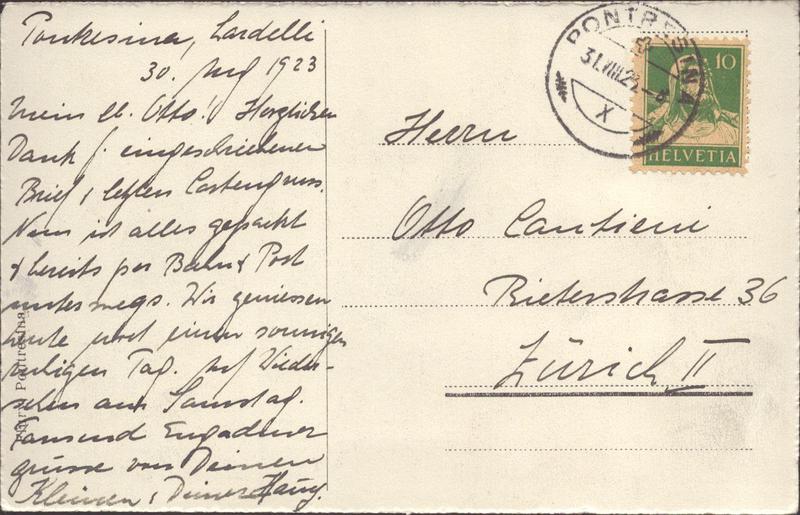 Pontresina, Sardelli
30. Aug 1923
Mein lb. Otto! Herzlichen
Dank f. eingeschriebenen
Brief & letzten Cartengruss.
Nun ist alles gepackt
& bereits per Bahn & Post
unterwegs. Wir geniessen
heute noch einen sonnigen
ruhigen Tag. Auf Wieder-
sehen am Samstag.
Tausend Engadiner
grüsse von Deinen
Kleinen & Deiner
Pontresina
PONTRESINA
31.VIII.23
X
10
HELVETIA
Herrn
Otto Cantieni
Bieterstrasse 36
Zürich II